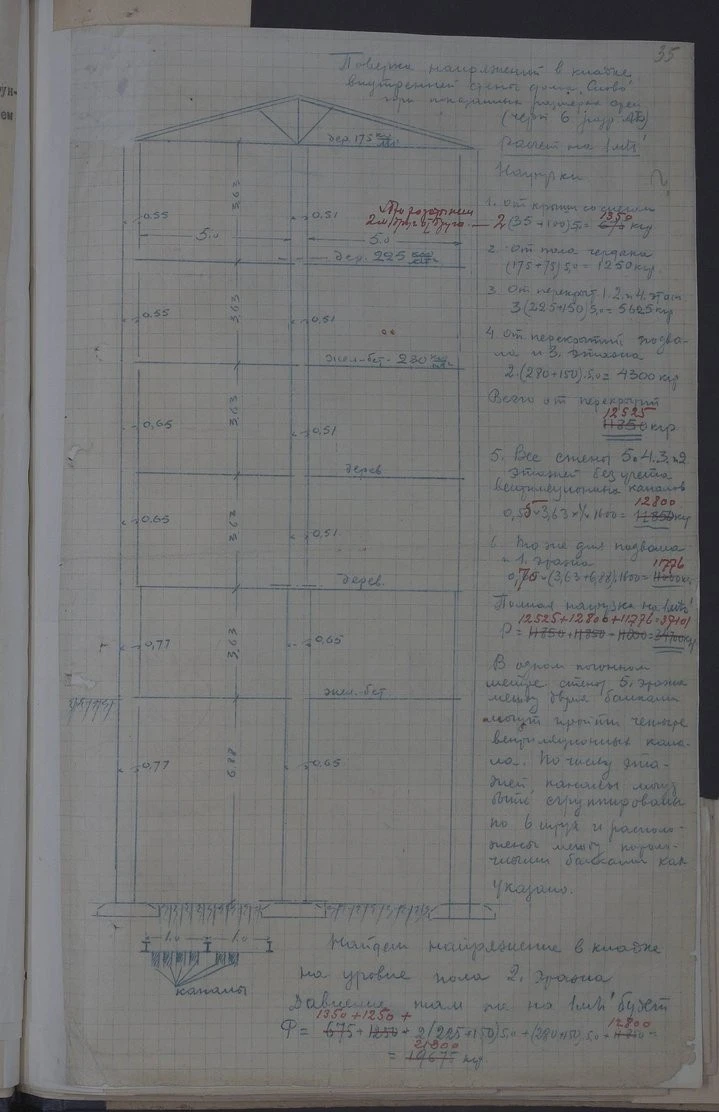 35
Поверка напряжений в кладке
внутренней стены дома "Слово"
при показанных размерах
(черт 6
Расчет на 1 mt'
Нагрузки
?
1. от крыши со снегом
2 (35+100) 5.0 = 675 1350 кгр
2. от пола чердака
(175+75) 5.0 = 1250 кгр
3. От перекрыт. 1. 2. и 4. этаж
3(225+150) 5.0 = 5625 кгр
4. от перекрытий подва-
ла и 3. этажа
2.(280+150).5.0 = 4300 кгр
Всего от перекрытий
12525
11850 кгр
5. Вес стены 5. 4. 3. и 2
этажей без учета
вентиляционных каналов
12800
0,55 × 3,63 × 4 × 1600 = 11850 кг
6. То же для подвала
и 1. этажа
11776
(3,63+6,88).1600 = 11000 кг
Полная нагрузка на 1 mt'
12525+12800+11776=37101
P = 11850+11850+11000=
В одном погонном
метре стены 5. этажа
между двумя балками
могут пройти четыре
вентиляционных кана-
ла. По числу эта-
жей, каналы могут
быть сгруппированы
по 6 штук и располо-
жены между
балками как
указано.
дер. 175
0.55
0,51
5.0
5.0
3,63
2 м друг от друга
дер. 225
0.55
3,63
0,51
жел-бет. 280
0,65
3,63
0,51
дерев
0.65
3,63
0,51
дерев.
0,77
3,63
0,65
жел.-бет
0,77
6.88
0,65
1.0
1.0
каналы
Найдем напряжение в кладке
на уровне пола 2. этажа
Давление там же на 1 mt' будет
1350 + 1250 +
P = 675 + 1250 + 2(225+150) 5.0 + (280+150) 5.0 + 12800
21800
= 19675 кгр.